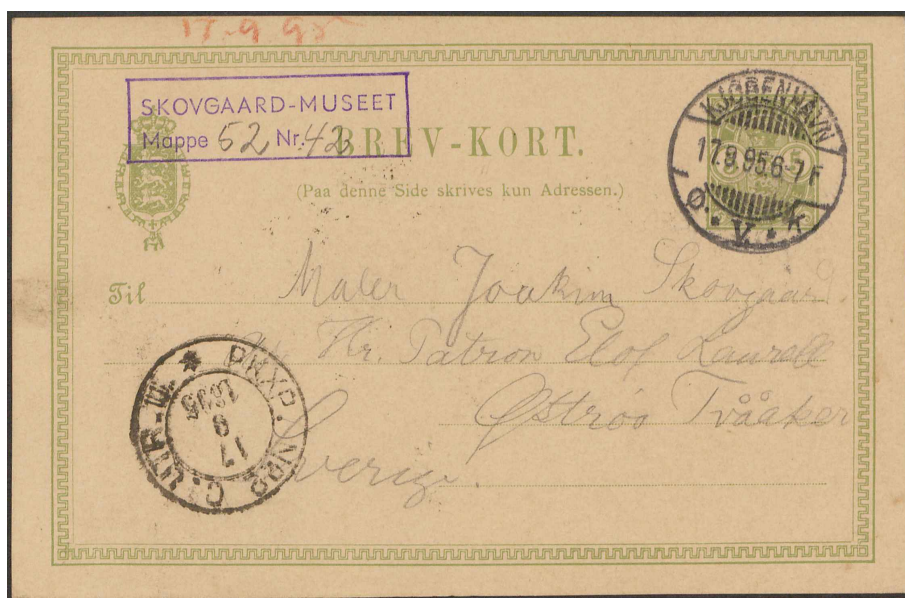 17.9.95
SKOVGAARD-MUSEET
Mappe 52 Nr. 42
BREV-KORT.
(Paa denne Side skrives kun Adressen.)
KJØBENHAVN
17.9.95.6-7 F
Ø. * V. * K
5
Til Maler Joakim Skovgaard
Hr. Patron Elof Laurell
Öströö Tvååker
Sverige
PKXP. NR 2 C. UTR. U.
17
9
1895